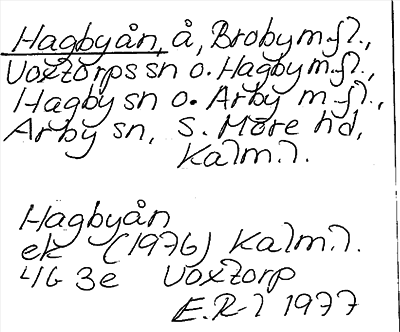 Hagbyån, å, Broby m.fl.,
Voxtorps sn o. Hagby m.fl.,
Hagby sn o. Arby m.fl.,
Arby sn, S. Möre hd,
Kalm.l.
Hagbyån
ek (1976) Kalm.l.
4G 3e Voxtorp
E.R-l 1977